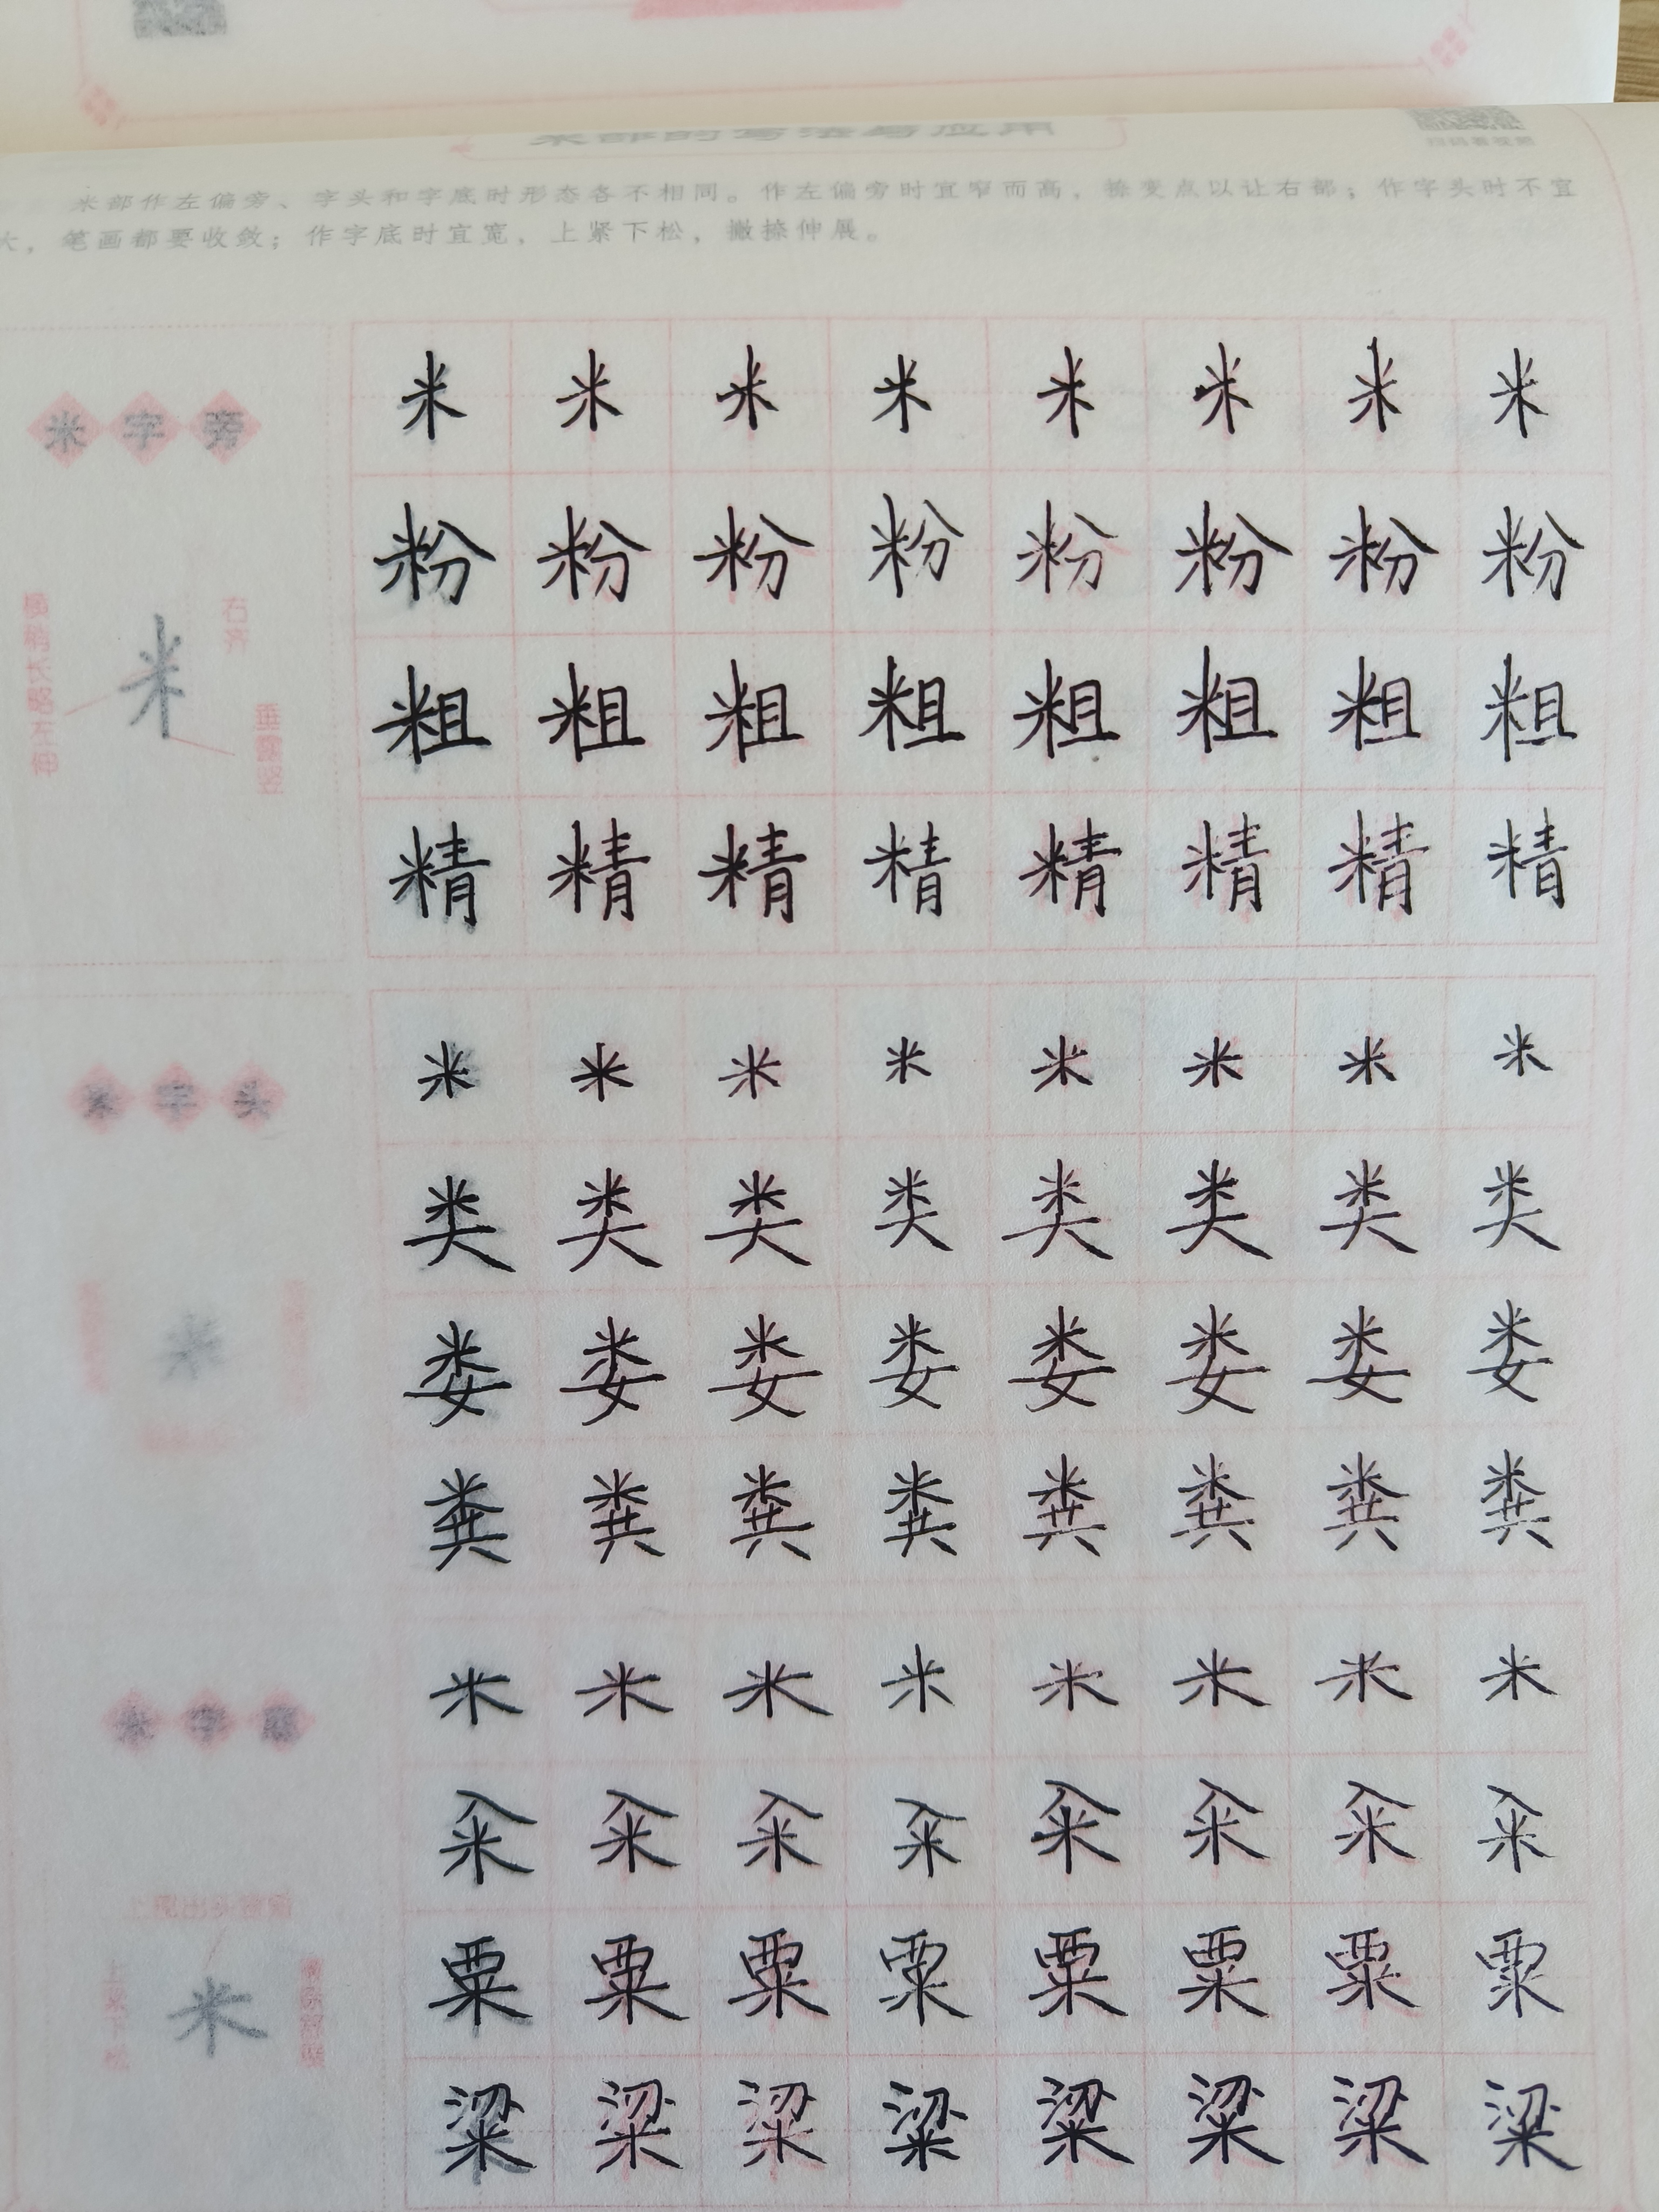 米部的写法与应用
米部作左偏旁、字头和字底时形态各不相同。作左偏旁时宜窄而高，捺变点以让右部；作字头时不宜
大，笔画都要收敛；作字底时宜宽，上紧下松，撇捺伸展。
米字旁
横稍长略左伸
米
右齐
垂露竖
米 米 米 米 米 米 米 米
粉 粉 粉 粉 粉 粉 粉 粉
粗 粗 粗 粗 粗 粗 粗 粗
精 精 精 精 精 精 精 精
米字头
米
米 米 米 米 米 米 米 米
类 类 类 类 类 类 类 类
娄 娄 娄 娄 娄 娄 娄 娄
粪 粪 粪 粪 粪 粪 粪 粪
米字底
上紧下松
米
米 米 米 米 米 米 米 米
籴 籴 籴 籴 籴 籴 籴 籴
粟 粟 粟 粟 粟 粟 粟 粟
粱 粱 粱 粱 粱 粱 粱 粱